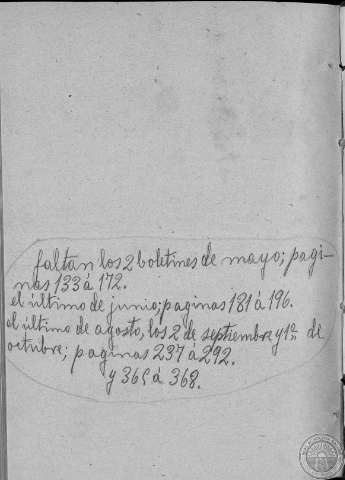 faltan los 2 boletines de mayo; pagi-
nas 133 á 172.
el último de junio; paginas 181 á 196.
el último de agosto, los 2 de septiembre y 1º de
octubre; paginas 237 á 292.
y 365 á 368.